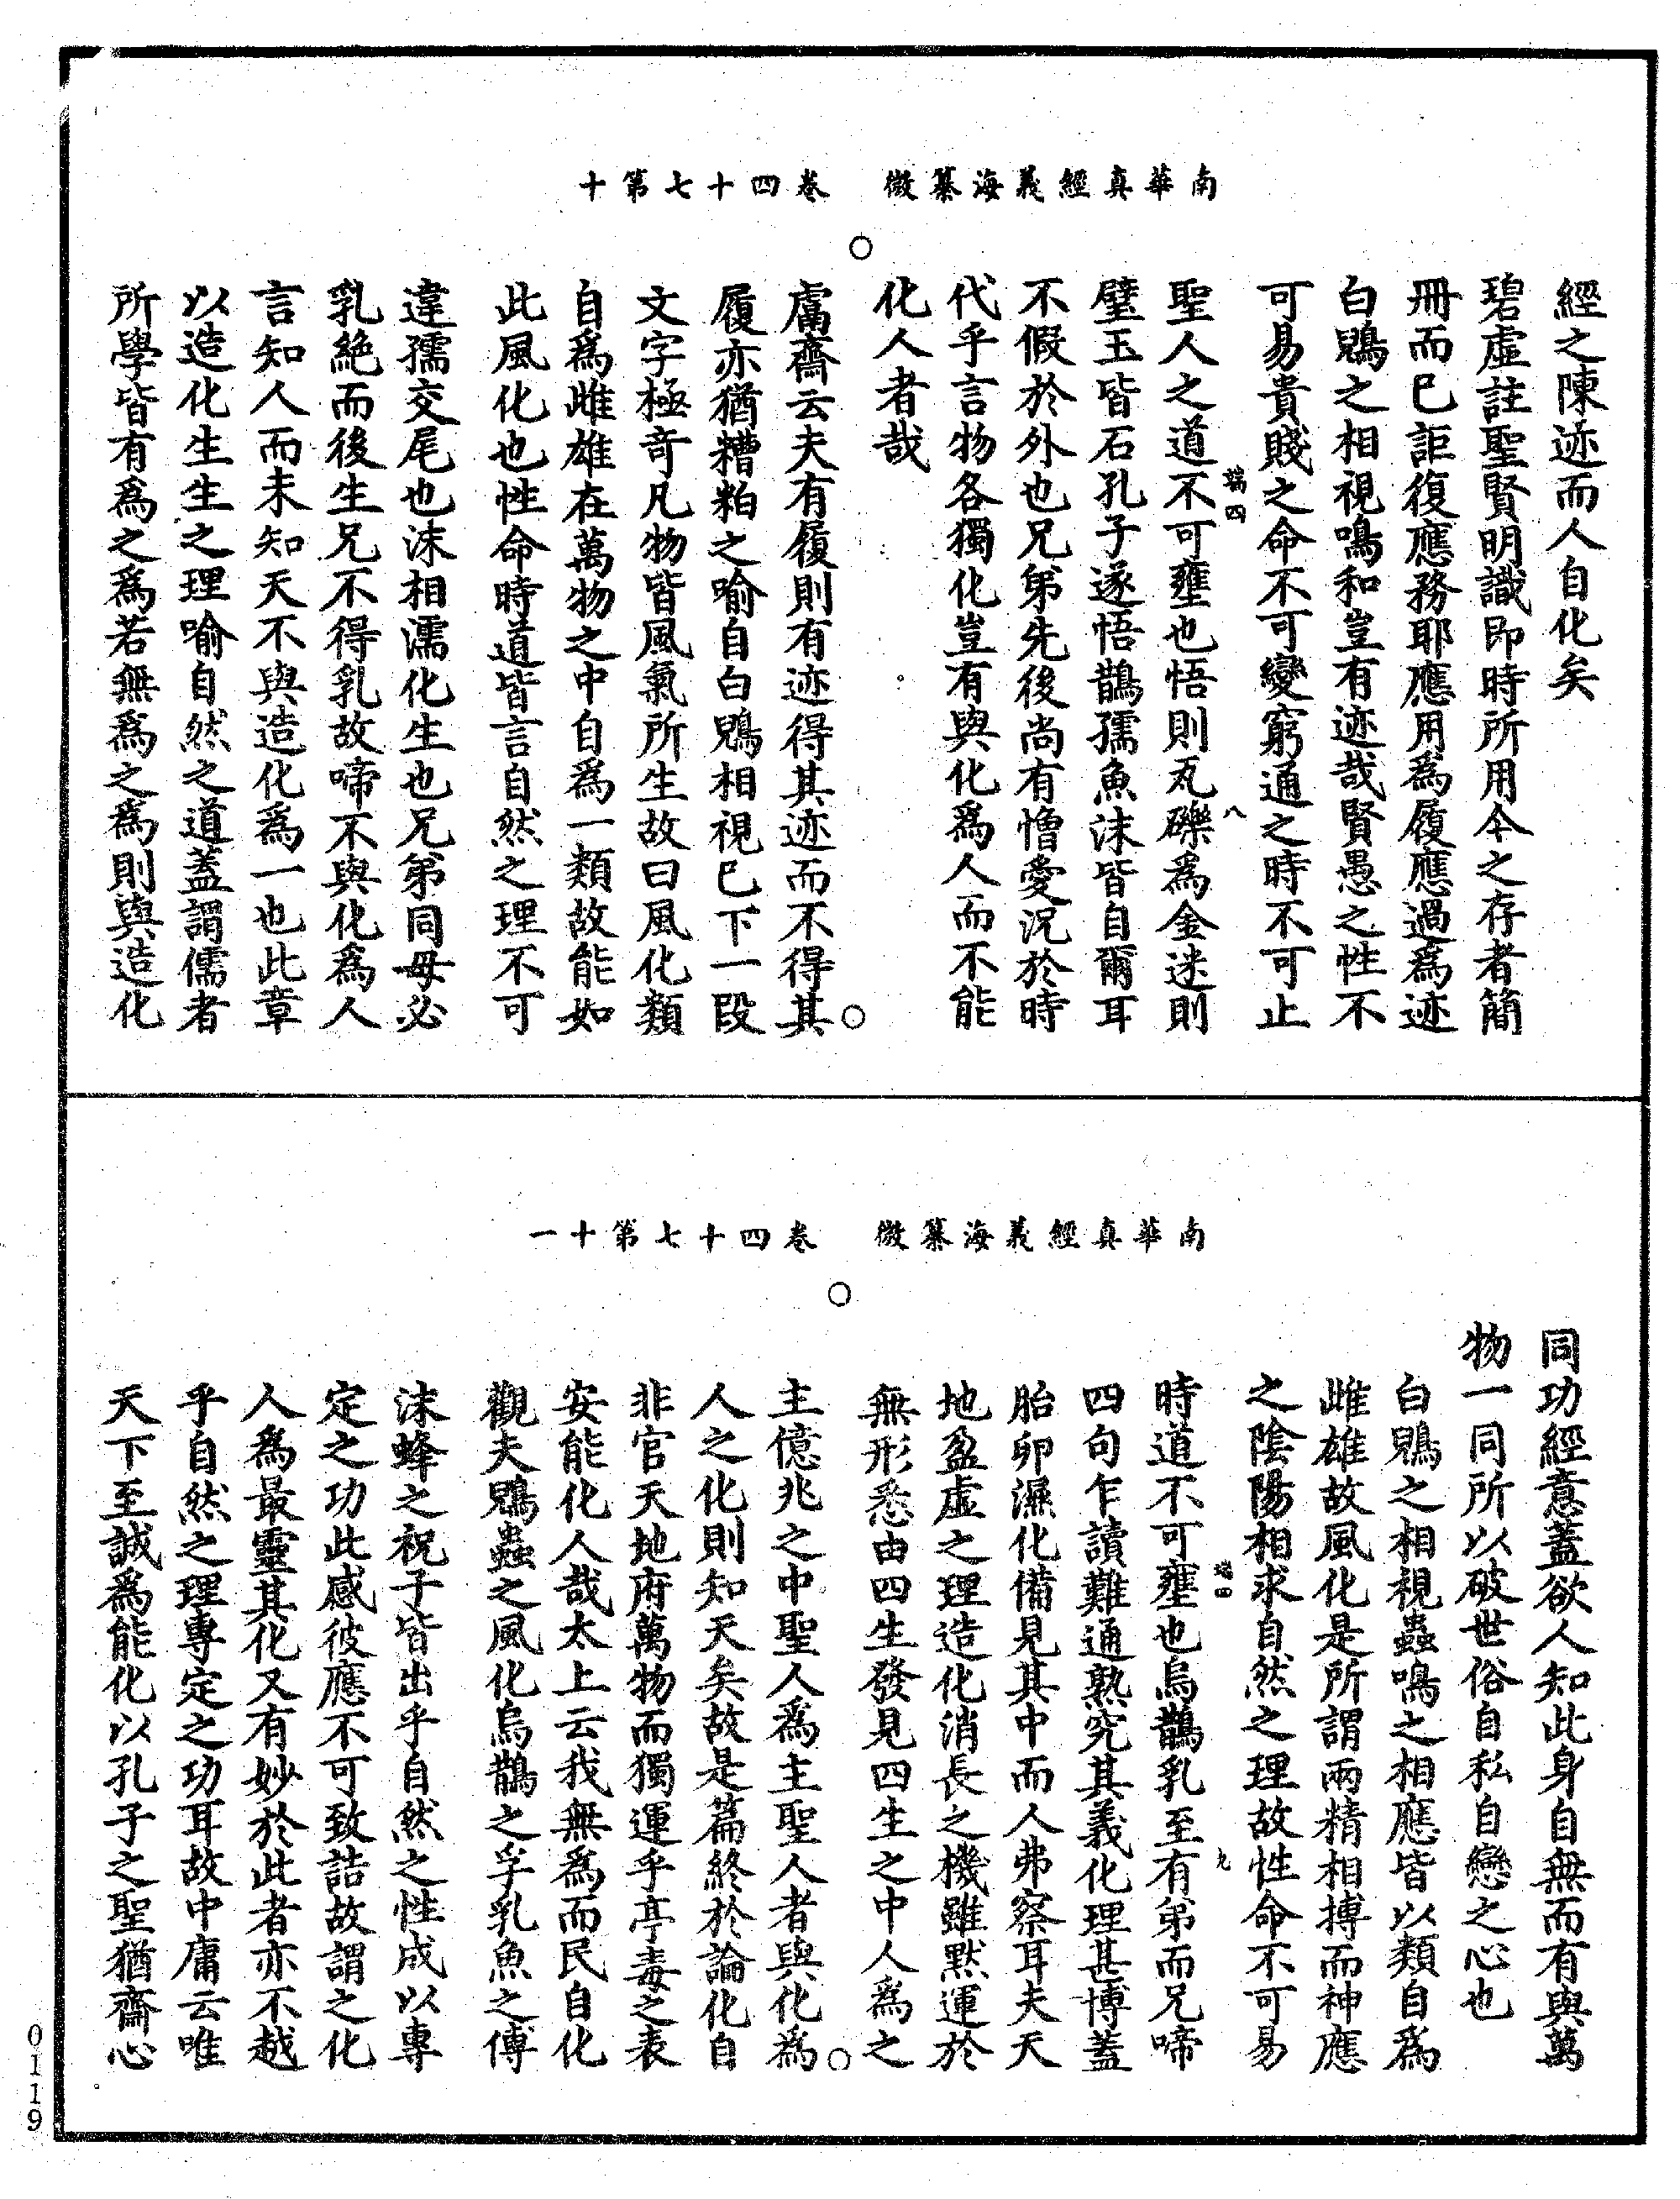 南華真經義海纂微　卷四十七第十
經之陳迹而人自化矣
碧虛註聖賢明識即時所用今之存者簡
冊而已詎復應務耶應用為履應過為迹
白鶂之相視鳴和豈有迹哉賢愚之性不
可易貴賤之命不可變窮通之時不可止
聖人之道不可壅也悟則瓦礫為金迷則
璧玉皆石孔子遂悟鵲孺魚沫皆自爾耳
不假於外也兄弟先後尚有憎愛況於時
代乎言物各獨化豈有與化為人而不能
化人者哉
端四
八
鬳齋云夫有履則有迹得其迹而不得其
履亦猶糟粕之喻自白鶂相視已下一段
文字極奇凡物皆風氣所生故曰風化類
自為雌雄在萬物之中自為一類故能如
此風化也性命時道皆言自然之理不可
違孺交尾也沫相濡化生也兄弟同母必
乳絕而後生兄不得乳故啼不與化為人
言知人而未知天不與造化為一也此章
以造化生生之理喻自然之道蓋謂儒者
所學皆有為之為若無為之為則與造化
南華真經義海纂微　卷四十七第十一
同功經意蓋欲人知此身自無而有與萬
物一同所以破世俗自私自戀之心也
白鶂之相視蟲鳴之相應皆以類自為
雌雄故風化是所謂兩精相搏而神應
之陰陽相求自然之理故性命不可易
時道不可壅也烏鵲乳至有弟而兄啼
四句乍讀難通熟究其義化理甚博蓋
胎卵濕化備見其中而人弗察耳夫天
地盈虛之理造化消長之機雖默運於
無形悉由四生發見四生之中人為之
端四
九
主億兆之中聖人為主聖人者與化為
人之化則知天矣故是篇終於論化自
非官天地府萬物而獨運乎亭毒之表
安能化人哉太上云我無為而民自化
觀夫鶂蟲之風化烏鵲之孚乳魚之傅
沫蜂之祝子皆出乎自然之性成以專
定之功此感彼應不可致詰故謂之化
人為最靈其化又有妙於此者亦不越
乎自然之理專定之功耳故中庸云唯
天下至誠為能化以孔子之聖猶齋心
0119